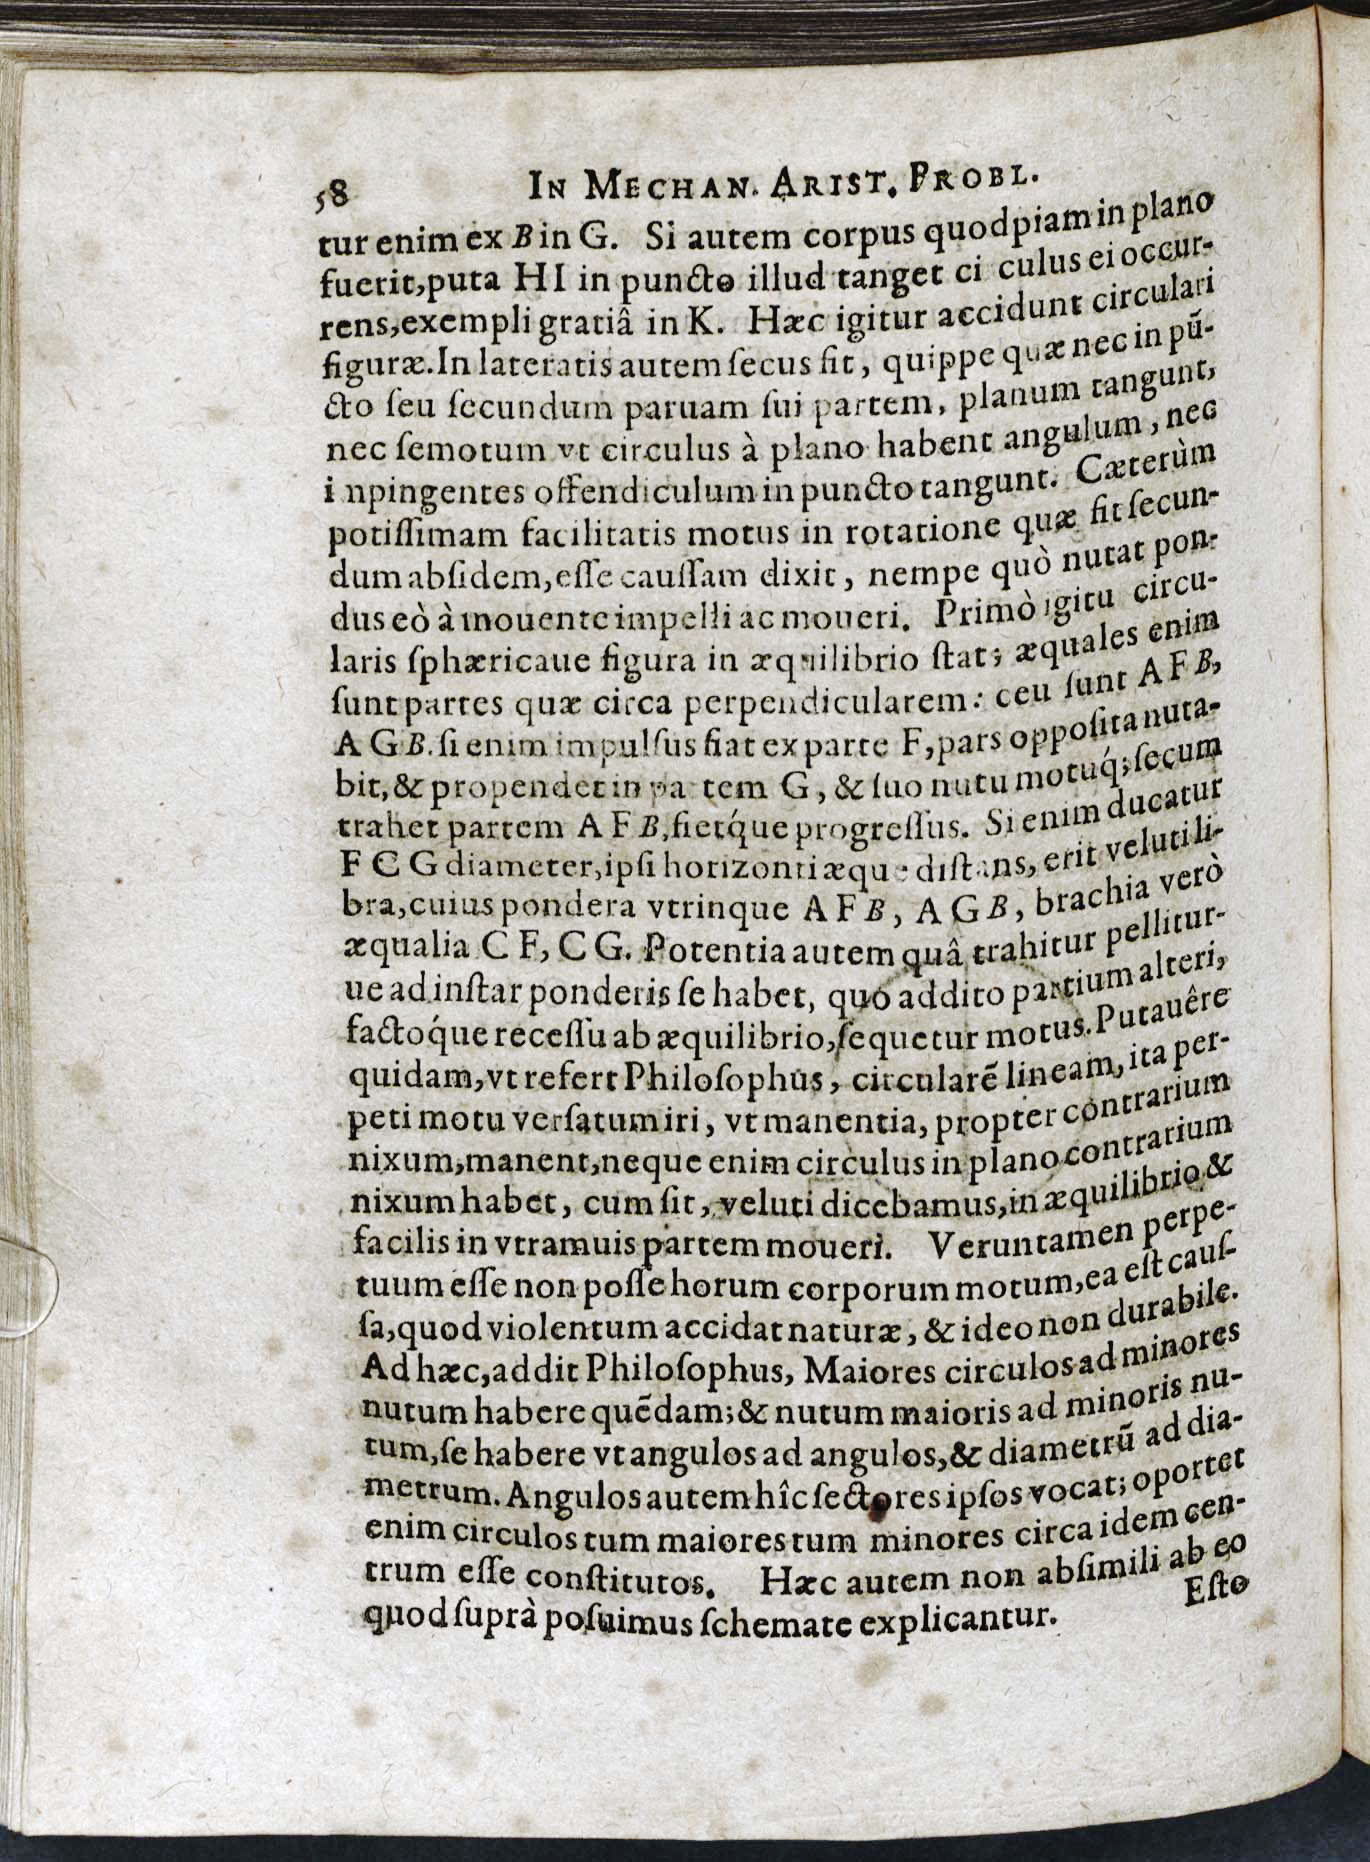 58 IN MECHAN. ARIST. PROBL.
tur enim ex B in G. Si autem corpus quodpiam in plano
fuerit, puta HI in puncto illud tanget ci culus ei occur-
rens, exempli gratiâ in K. Hæc igitur accidunt circulari
figuræ. In lateratis autem ſecus fit, quippe quæ nec in pũ-
cto ſeu ſecundum paruam ſui partem, planum tangunt,
nec ſemotum vt circulus à plano habent angulum, nec
i npingentes offendiculum in puncto tangunt. Cæterùm
potiſſimam facilitatis motus in rotatione quæ fit ſecun-
dum abſidem, eſſe cauſſam dixit, nempe quò nutat pon-
dus eò à mouente impelli ac moueri. Primò igitu circu-
laris ſphæricaue figura in æquilibrio ſtat; æquales enim
ſunt partes quæ circa perpendicularem: ceu ſunt A F B,
A G B. ſi enim impulſus fiat ex parte F, pars oppoſita nuta-
bit, & propendet in pa tem G, & ſuo nutu motuq́; ſecum
trahet partem A F B, fietq́ue progreſſus. Si enim ducatur
F C G diameter, ipſi horizonti æque diſtans, erit veluti li-
bra, cuius pondera vtrinque A F B, A G B, brachia verò
æqualia C F, C G. Potentia autem quâ trahitur pellitur-
ue ad inſtar ponderis ſe habet, quo addito partium alteri,
factoq́ue receſſu ab æquilibrio, ſequetur motus. Putauêre
quidam, vt refert Philoſophus, circularẽ lineam, ita per-
peti motu verſatum iri, vt manentia, propter contrarium
nixum, manent, neque enim circulus in plano contrarium
nixum habet, cum ſit, veluti dicebamus, in æquilibrio &
facilis in vtramuis partem moueri. Veruntamen perpe-
tuum eſſe non poſſe horum corporum motum, ea eſt cauſ-
ſa, quod violentum accidat naturæ, & ideo non durabile.
Ad hæc, addit Philoſophus, Maiores circulos ad minores
nutum habere quẽdam; & nutum maioris ad minoris nu-
tum, ſe habere vt angulos ad angulos, & diametrũ ad dia-
metrum. Angulos autem hîc ſectores ipſos vocat; oportet
enim circulos tum maiores tum minores circa idem cen-
trum eſſe conſtitutos. Hæc autem non abſimili ab eo
quod ſuprà poſuimus ſchemate explicantur.
Eſto